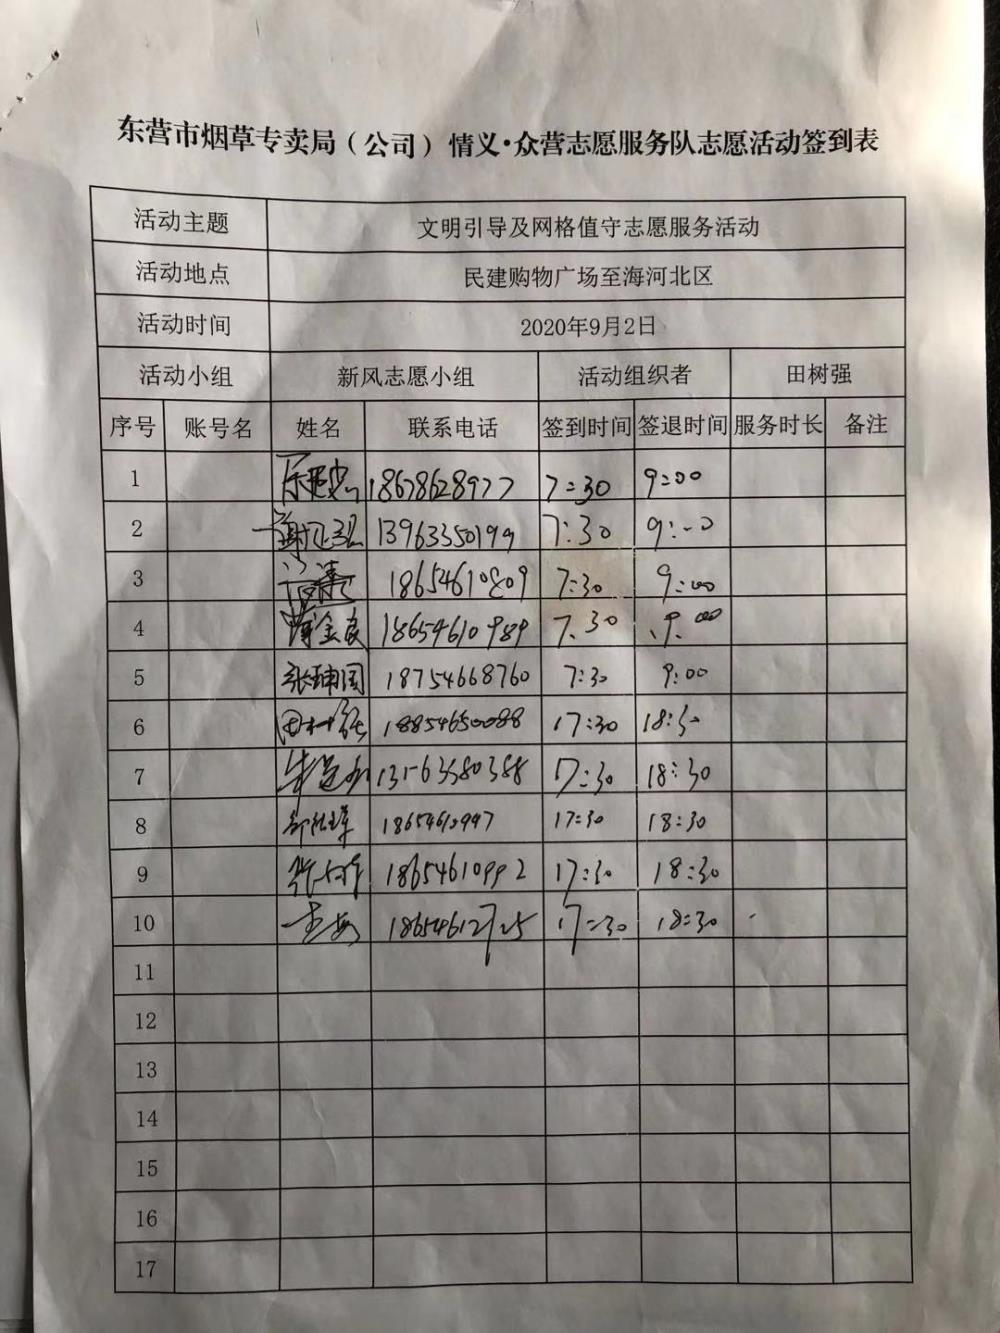 东营市烟草专卖局（公司）情义·众营志愿服务队志愿活动签到表
活动主题 文明引导及网格值守志愿服务活动
活动地点 民建购物广场至海河北区
活动时间 2020年9月2日
活动小组 新风志愿小组 活动组织者 田树强
序号 账号名 姓名 联系电话 签到时间 签退时间 服务时长 备注
1 18678628977 7:30 9:00
2 13963350199 7:30
3 18654610809 7:30 9:00
4 18654610989 7.30 9:00
5 张珊国 18754668760 7:30 9:00
6 田树强 18854650088 17:30 18:30
7 13163580388 17:30 18:30
8 18654610997 17:30 18:30
9 18654610992 17:30 18:30
10 18654612725 17:30 18:30
11
12
13
14
15
16
17